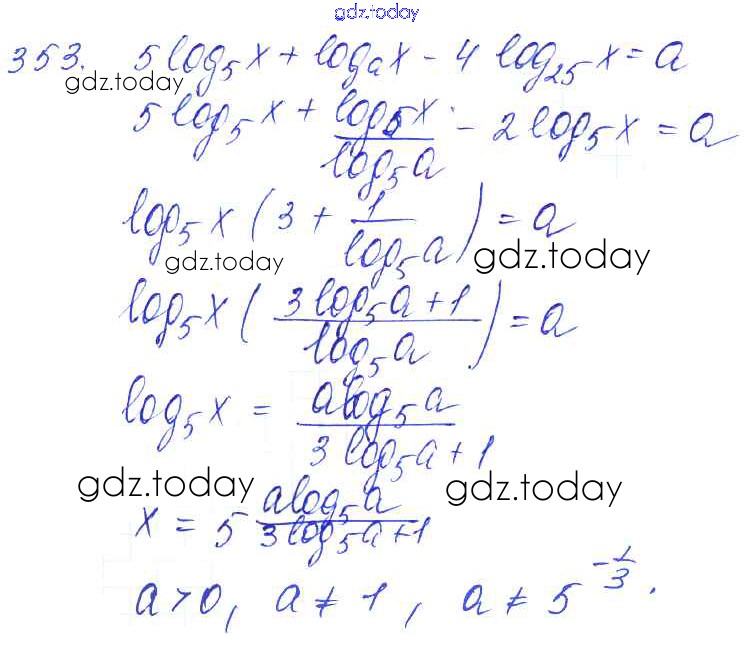 gdz.today
353. 5 log₅ x + logₐ x - 4 log₂₅ x = a
gdz.today
5 log₅ x + log₅ x / log₅ a - 2 log₅ x = a
log₅ x (3 + 1 / log₅ a) = a
gdz.today gdz.today
log₅ x ((3 log₅ a + 1) / log₅ a) = a
log₅ x = a log₅ a / (3 log₅ a + 1)
gdz.today gdz.today
x = 5^(a log₅ a / (3 log₅ a + 1))
a > 0, a ≠ 1, a ≠ 5^(-1/3).